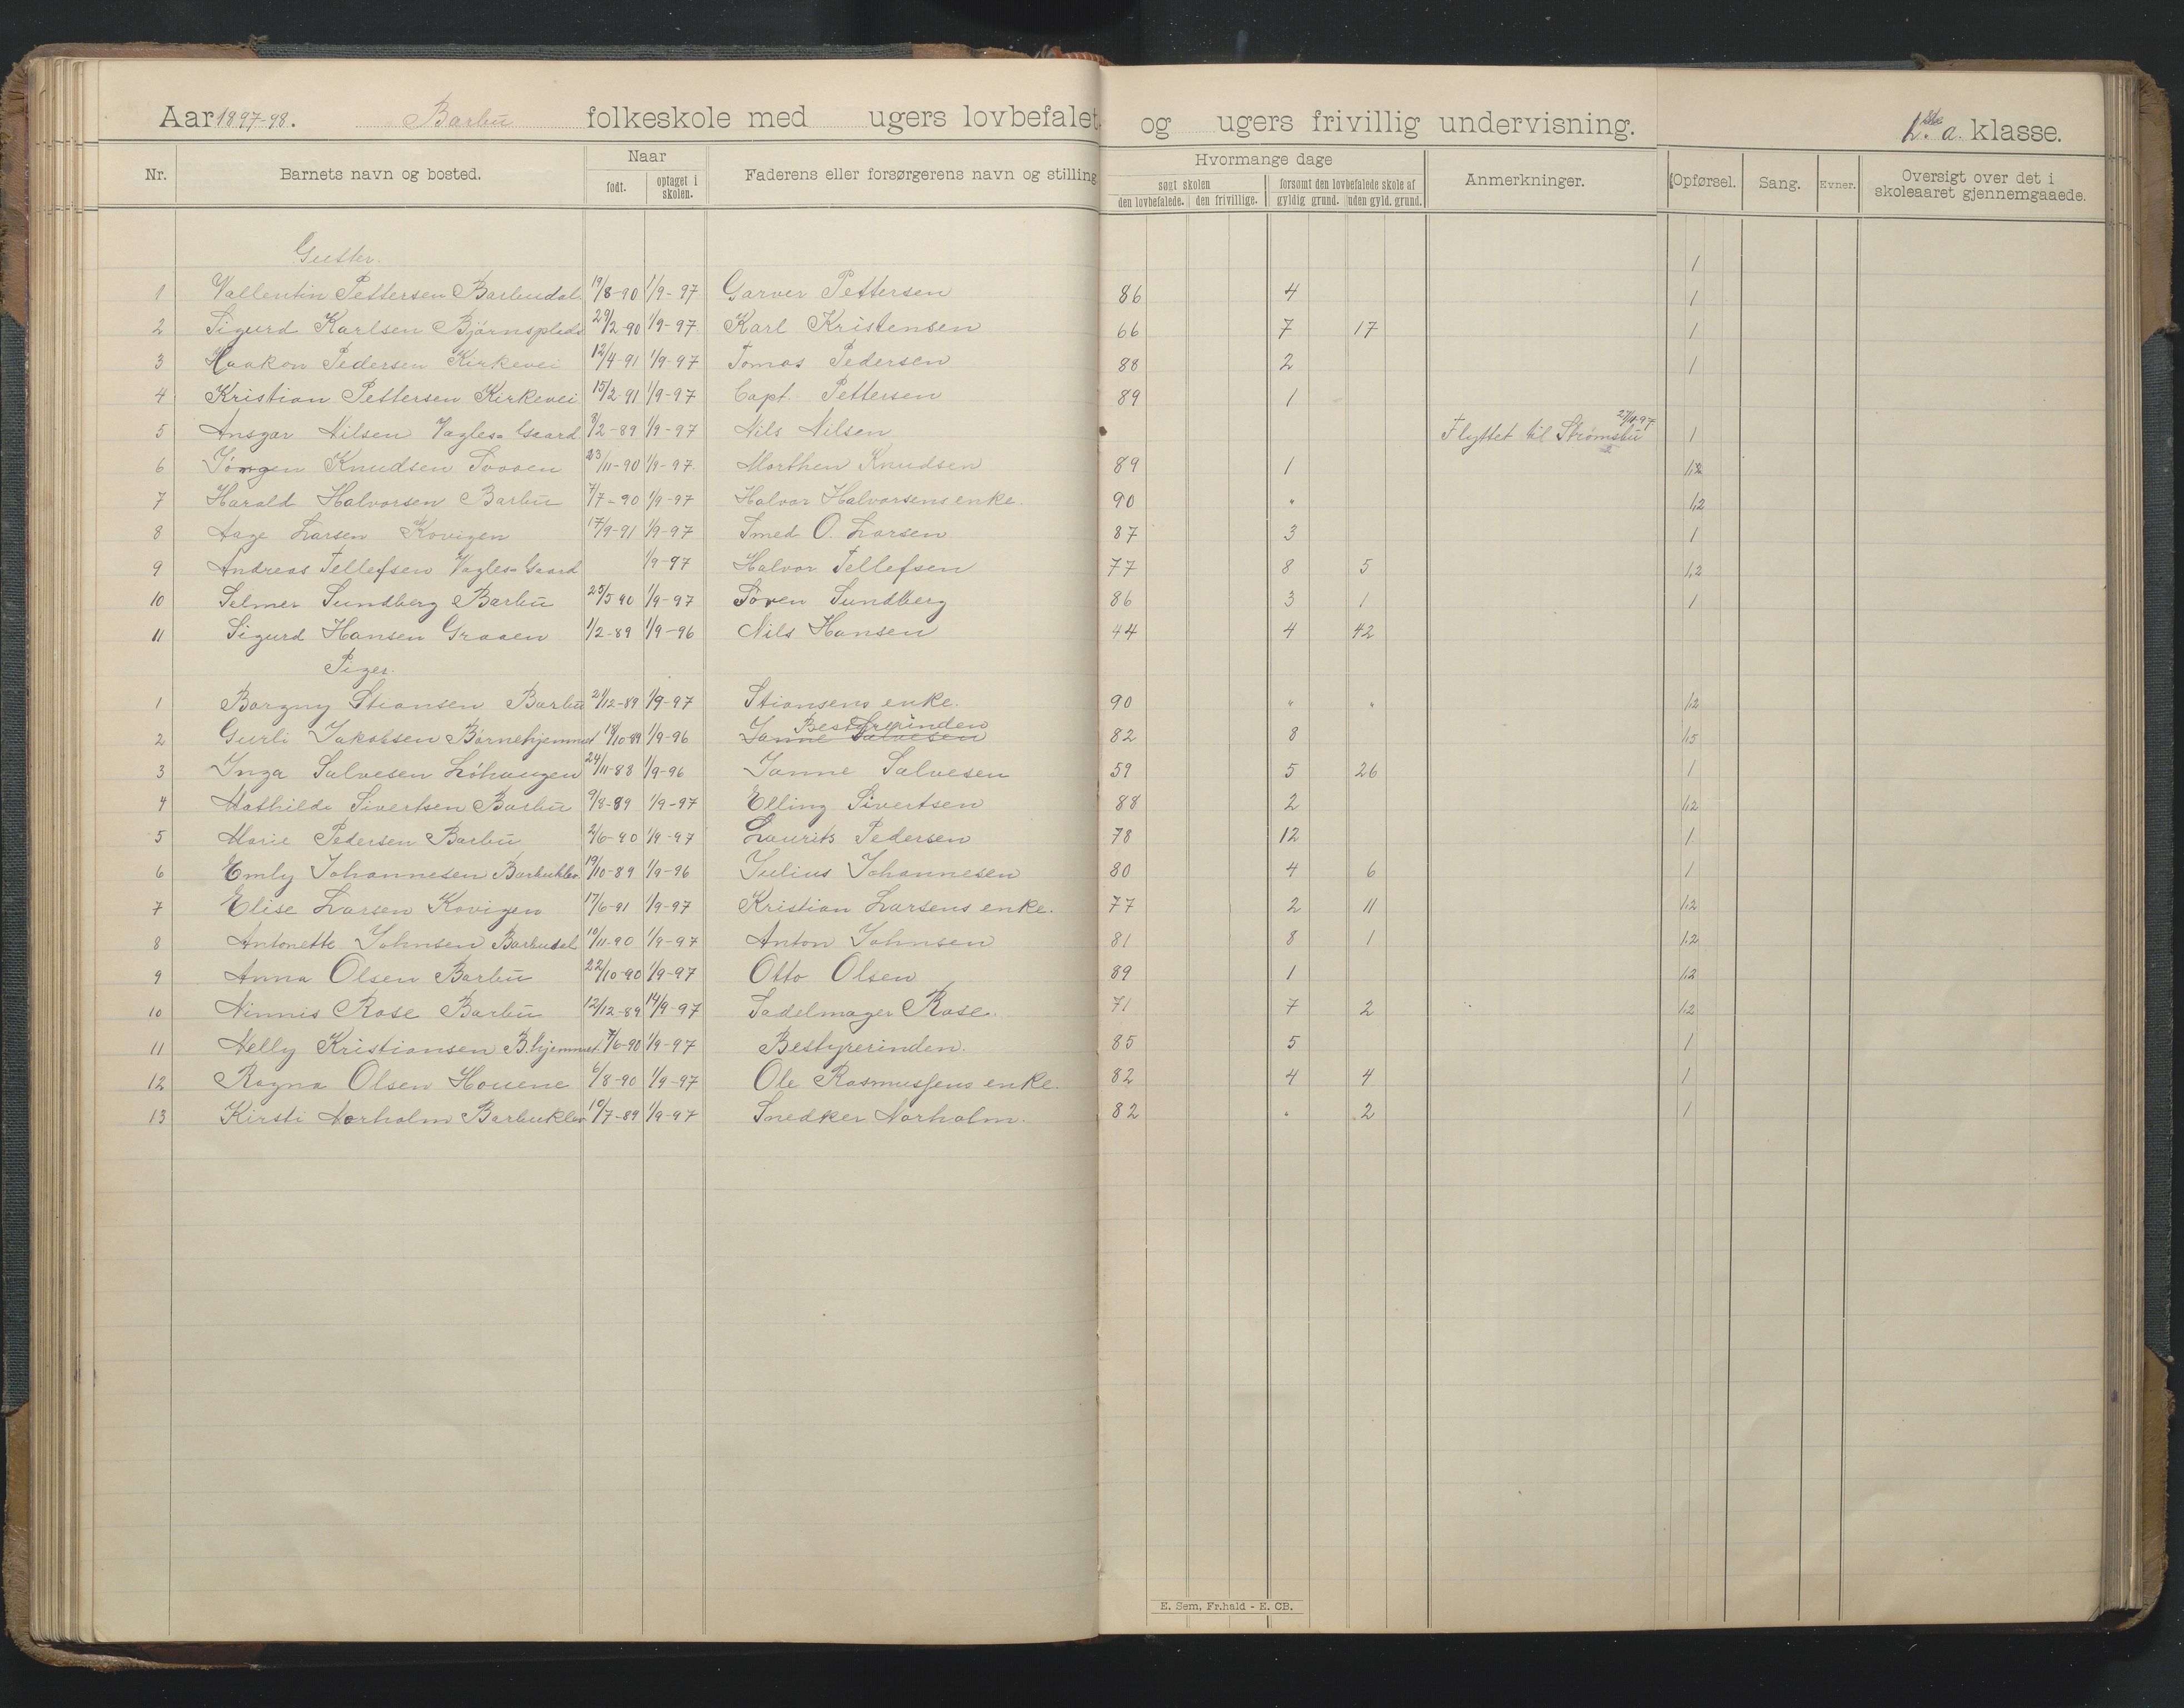 Aar 1897-98. Barbu folkeskole med ugers lovbefalet og ugers frivillig undervisning. a. klasse.
Nr. Barnets navn og bosted. Naar født. optaget i skolen. Faderens eller forsørgerens navn og stilling Hvormange dage søgt skolen den lovbefalede. den frivillige. forsømt den lovbefalede skole af gyldig grund. uden gyld. grund. Anmerkninger. Opførsel. Sang. Evner. Oversigt over det i skoleaaret gjennemgaaede.
Gutter. 1
1 Vallentin Pettersen Barbudal. 19/8-90 1/9-97 Garver Pettersen 86 4 1
2 Sigurd Karlsen Bjørnsplads 29/2-90 1/9-97 Karl Kristensen 66 7 17 1
3 Haakon Pedersen Kirkevei 12/4-91 1/9-97 Tomas Pedersen 88 2 1
4 Kristian Pettersen Kirkevei 15/2-91 1/9-97 Capt. Pettersen 89 1
5 Ansgar Nilsen Vagles-Gaard 8/2-89 1/9-97 Nils Nilsen Flyttet til Strømsbu 1
6 Jørgen Knudsen Svoven 23/11-90 1/9-97. Morthen Knudsen 89 1 1,2
7 Harald Halvorsen Barbu 7/7-90 1/9-97 Halvor Halvorsens enke. 90 " 1,2
8 Aage Larsen Kovigen 17/9-91 1/9-97 Smed O. Larsen 87 3 1
9 Andreas Tellefsen Vagles-Gaard 1/9-97 Halvor Tellefsen 77 8 5 1,2
10 Selmer Sundberg Barbu 25/5 90 1/9-97 Søren Sundberg 86 3 1 1
11 Sigurd Hansen Graaen 1/2-89 1/9-96 Nils Hansen 44 4 42
Piger.
1 Borgny Stiansen Barbu 21/12-89 1/9-97 Stiansens enke. 90 " " 1,2
2 Gurli Jakobsen Børnehjemmet 18/10-89 1/9-96 Janne Salvesen Bestyrerinden 82 8 1,5
3 Inga Salvesen Løhaugen 24/11-88 1/9-96 Janne Salvesen 59 5 26 1
4 Mathilde Sivertsen Barbu 9/8-89 1/9-97 Elling Sivertsen 88 2 1,2
5 Marie Pedersen Barbu 2/6-90 1/9-97 Laurits Pedersen 78 12 1
6 Emly Johannesen Barbuklev 19/10-89 1/9-96 Julius Johannesen 80 4 6 1
7 Elise Larsen Kovigen 17/6-91 1/9-97 Kristian Larsens enke. 77 2 11 1,2
8 Antonette Johnsen Barbudal 10/11-90 1/9-97 Anton Johnsen 81 8 1 1,2
9 Anna Olsen Barbu 22/10-90 1/9-97 Otto Olsen 89 1 1,2
10 Ninnis Rose Barbu 12/12-89 14/9-97 Sadelmager Rose. 71 7 2 1,2
11 Nelly Kristiansen B.hjemmet. 7/6-90 1/9-97 Bestyrerinden. 85 5 1
12 Ragna Olsen Houene 6/8-90 1/9-97 Ole Rasmussens enke. 82 4 4 1
13 Kirsti Nørholm Barbuklev 10/7-89 1/9-97 Snedker Nørholm. 82 " 2 1
E. Sem, Fr.hald - E. CB.